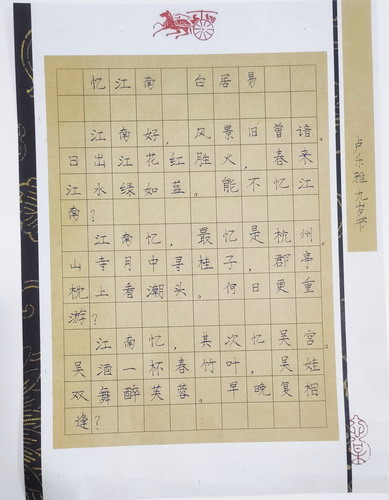 忆江南 白居易
江南好，风景旧曾谙。
日出江花红胜火，春来
江水绿如蓝。能不忆江
南？
江南忆，最忆是杭州。
山寺月中寻桂子，郡亭
枕上看潮头。何日更重
游？
江南忆，其次忆吴宫。
吴酒一杯春竹叶，吴娃
双舞醉芙蓉。早晚复相
逢？
卢乐雅九岁书